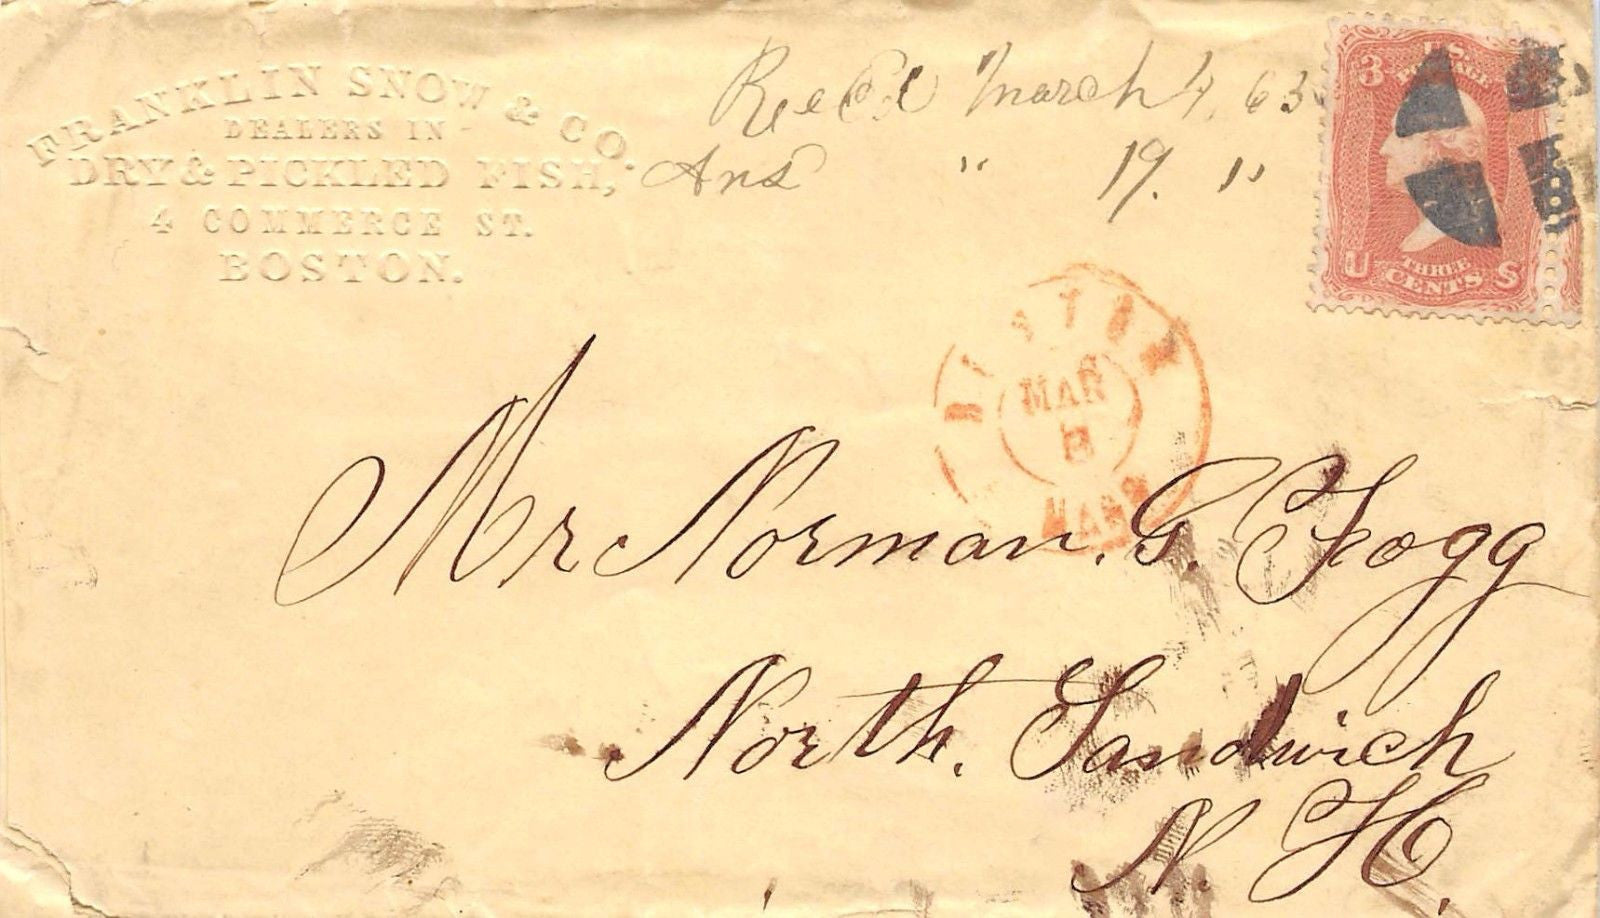 FRANKLIN SNOW & CO.
DEALERS IN
DRY & PICKLED FISH,
4 COMMERCE ST.
BOSTON.
Rec'd March 4, 63
Ans " 19. "
3 U.S. POSTAGE
U THREE CENTS S
BOSTON
MAR
MASS
Mr Norman. G. Fogg
North. Sandwich
N. H.